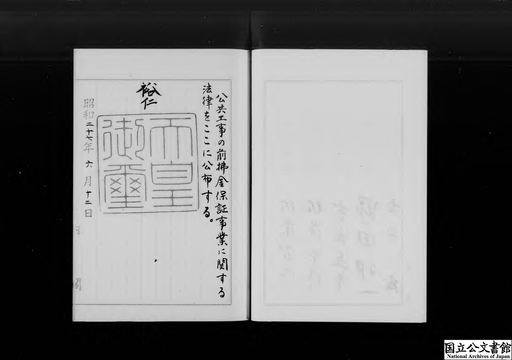 公共工事の前払金保証事業に関する
法律をここに公布する。
裕仁
天皇
御璽
昭和二十七年六月十二日
国立公文書館
National Archives of Japan